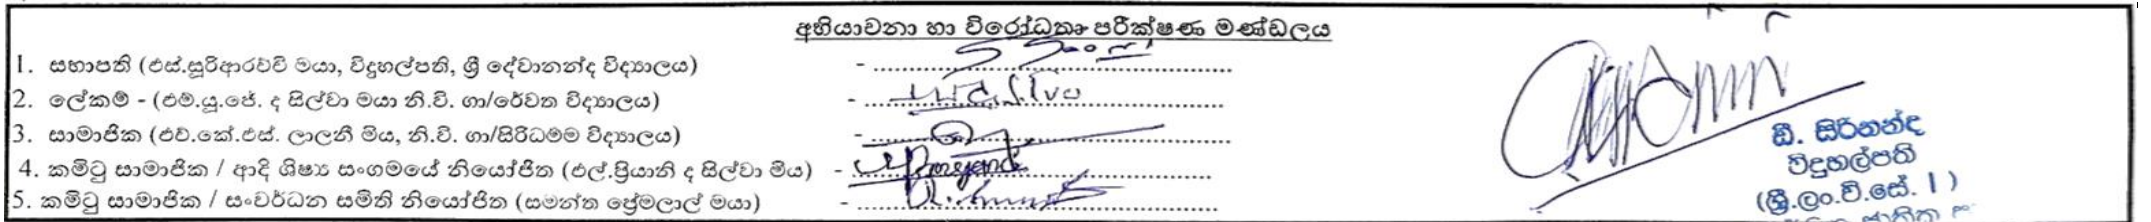 අභියාචනා හා විරෝධතා පරීක්ෂණ මණ්ඩලය
1. සභාපති (එස්.සූරිආරච්චි මයා, විදුහල්පති, ශ්‍රී දේවානන්ද විද්‍යාලය) - ........................
2. ලේකම් - (එම්.යූ.ජේ. ද සිල්වා මයා නි.වි. ගා/රේවත විද්‍යාලය) - ........................
3. සාමාජික (එච්.කේ.එස්. ලාලනී මිය, නි.වි. ගා/සිරිධම්ම විද්‍යාලය) - ........................
4. කමිටු සාමාජික / ආදි ශිෂ්‍ය සංගමයේ නියෝජිත (එල්.ප්‍රියානි ද සිල්වා මිය) - ........................
5. කමිටු සාමාජික / සංවර්ධන සමිති නියෝජිත (සමන්ත ප්‍රේමලාල් මයා) - ........................
ඩී. සිරිනන්ද
විදුහල්පති
(ශ්‍රී.ලං.වි.සේ. 1)